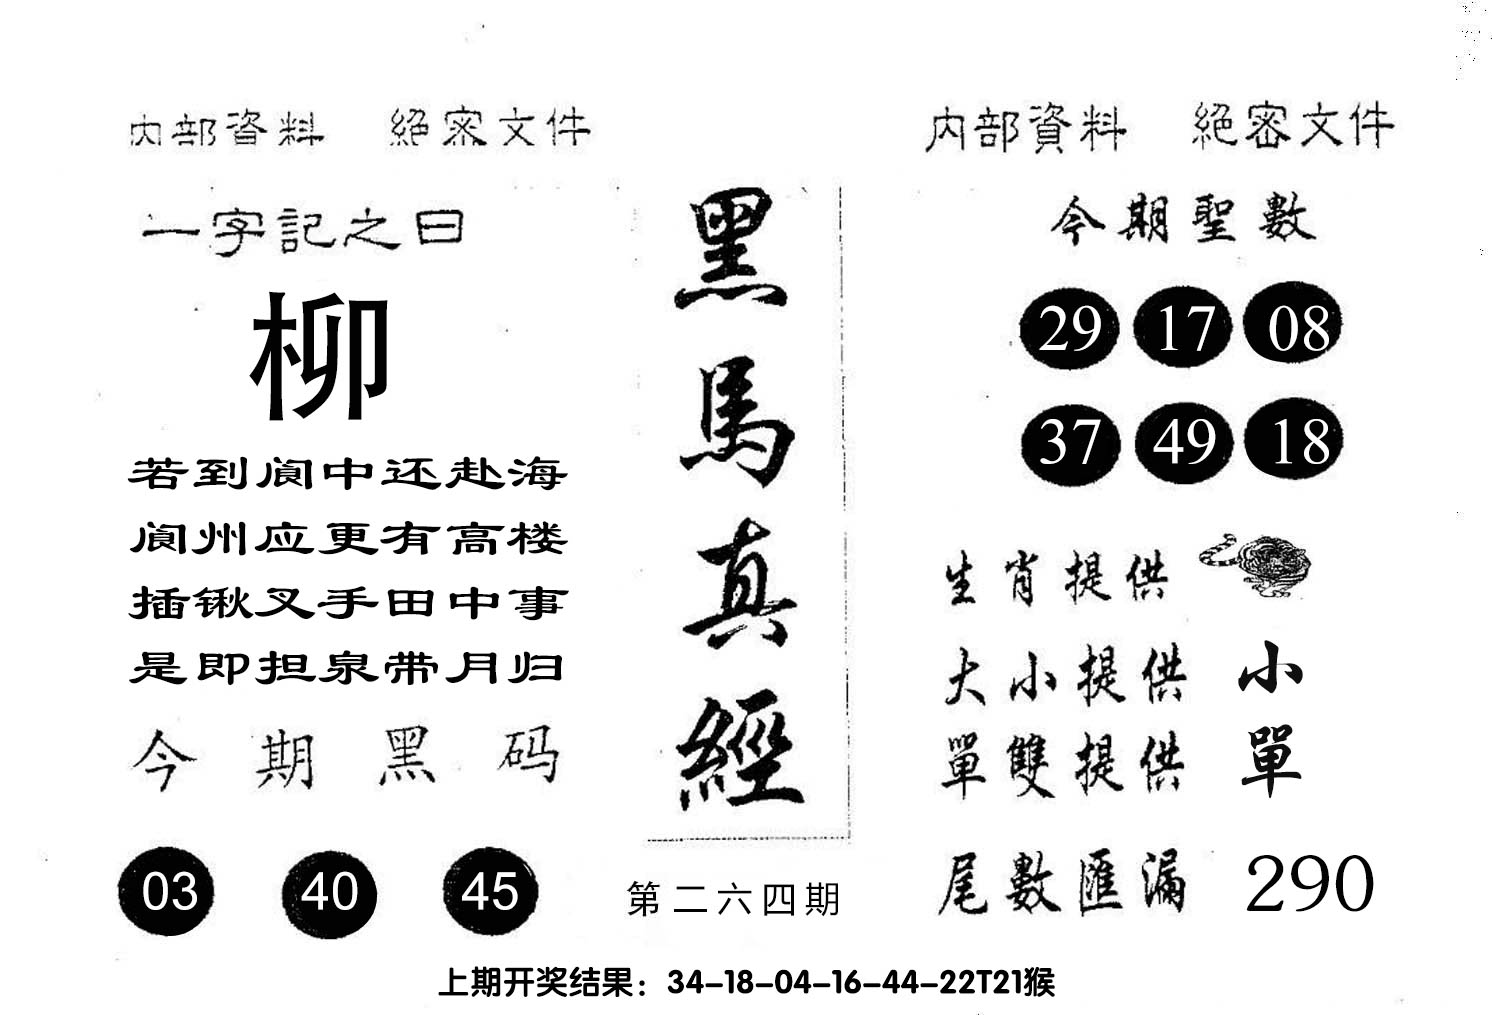 内部資料　絕密文件
一字記之曰
柳
若到阆中还赴海
阆州应更有高楼
插锹叉手田中事
是即担泉带月归
今期黑码
03 40 45
黑馬真經
第二六四期
内部資料　絕密文件
今期聖數
29 17 08
37 49 18
生肖提供
大小提供 小
單雙提供 單
尾數匯漏 290
上期开奖结果：34-18-04-16-44-22T21猴